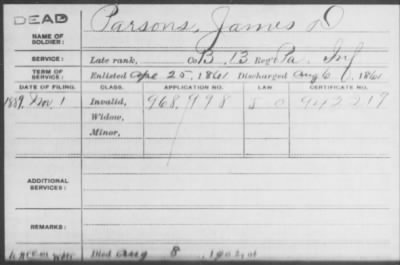 DEAD
NAME OF SOLDIER: Parsons, James D
SERVICE: Late rank, Co B, 13 Reg't Pa. Inf
TERM OF SERVICE: Enlisted Apr 25, 1861 Discharged Aug 6, 1861
DATE OF FILING. CLASS. APPLICATION NO. LAW CERTIFICATE NO.
1889, Nov. 1 Invalid, 968,998 80 942219
Widow,
Minor,
ADDITIONAL SERVICES:
REMARKS:
Died Aug 8, 1902, at